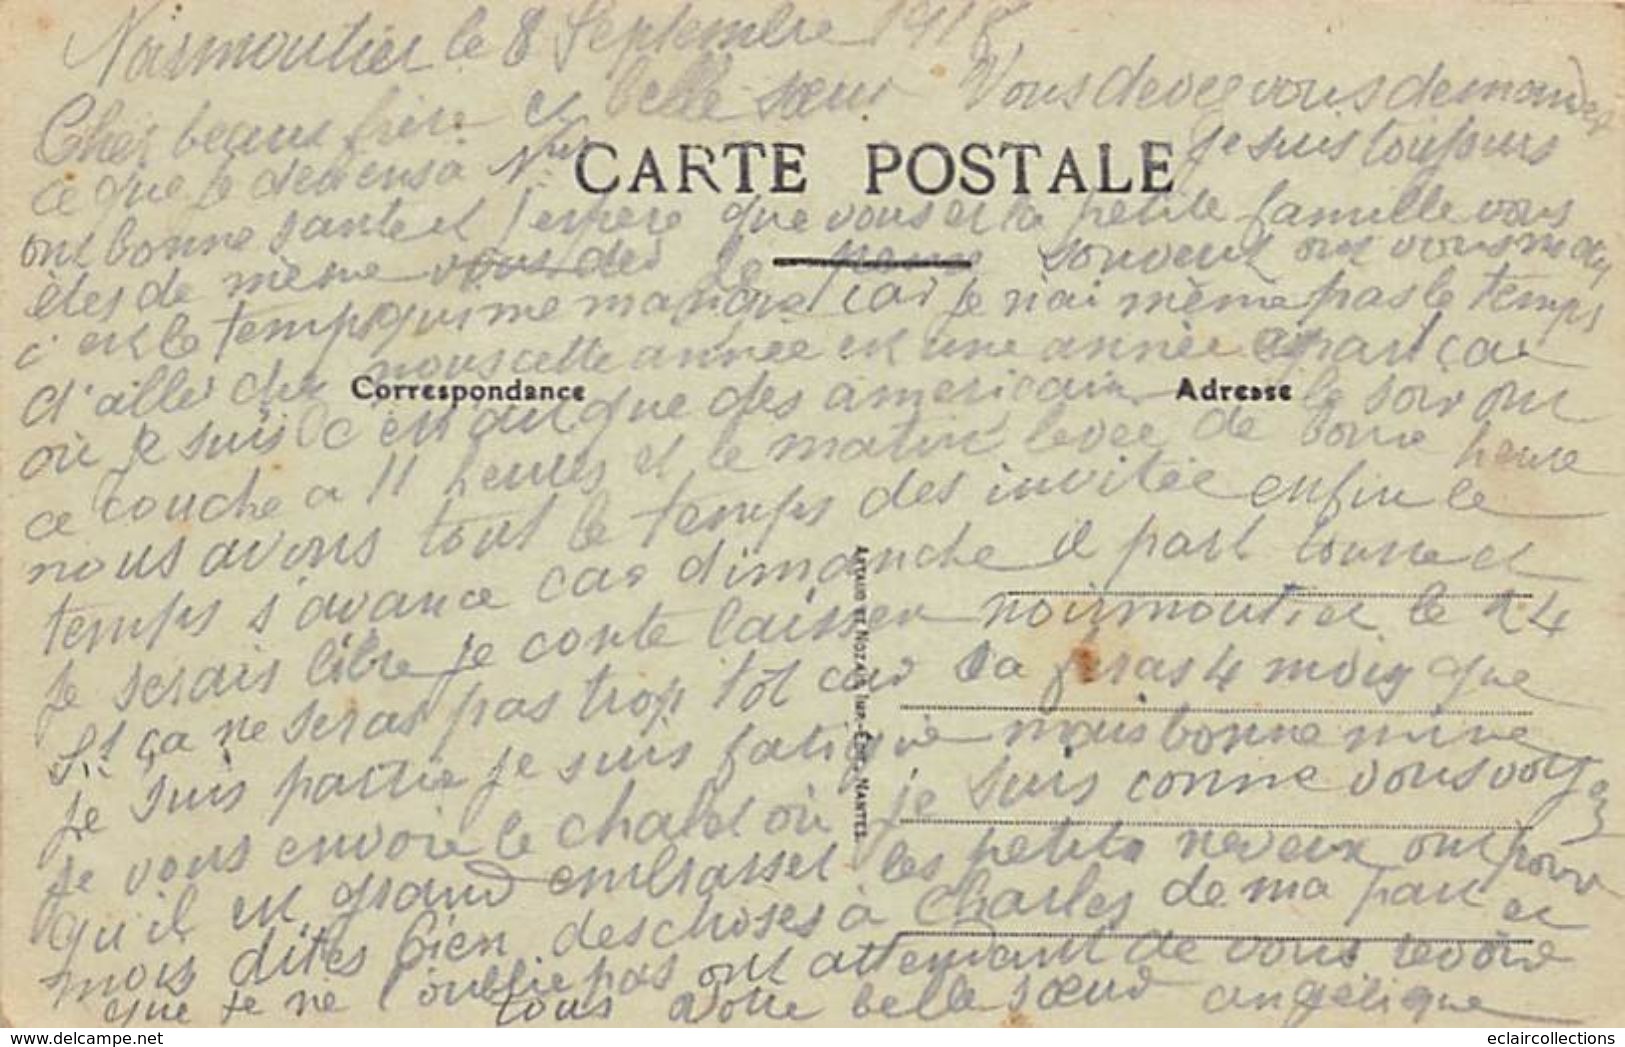 Noirmoutier le 8 Septembre 1918
Cher beaux frère et belle sœur Vous devez vous demander
ce que je deviens à Ntier je suis toujours
CARTE POSTALE
ont bonne sante et j'espère que vous et la petite famille vous
êtes de même vous de souvent ont vous
c'est le temps qui me manque car je n'ai même pas le temps
d'aller chez nous cette année est une année apart car
où je suis c'est que des americain le soir ont
Correspondance
Adresse
ce couche a 11 heures et le matin levee de bonne heure
nous avons tout le temps des invitée enfin le
temps s'avance car dimanche il part tous et
je serais libre je conte laisser noirmoutier le 24
St ça ne seras pas trop tôt car sa feras 4 mois que
je suis partie je suis fatigue mais bonne mine
je vous envoie le chalet où je suis conne vous voyez
qu'il est grand embrasser les petits neveux ont pour
mois dites bien des choses à Charles de ma part et
que je ne l'oublie pas ont attendant de vous revoire
tous Votre belle sœur angélique
ARTAUD ET NOZAIS, IMP.-EDIT. NANTES.
www.delcampe.net
eclaircollections